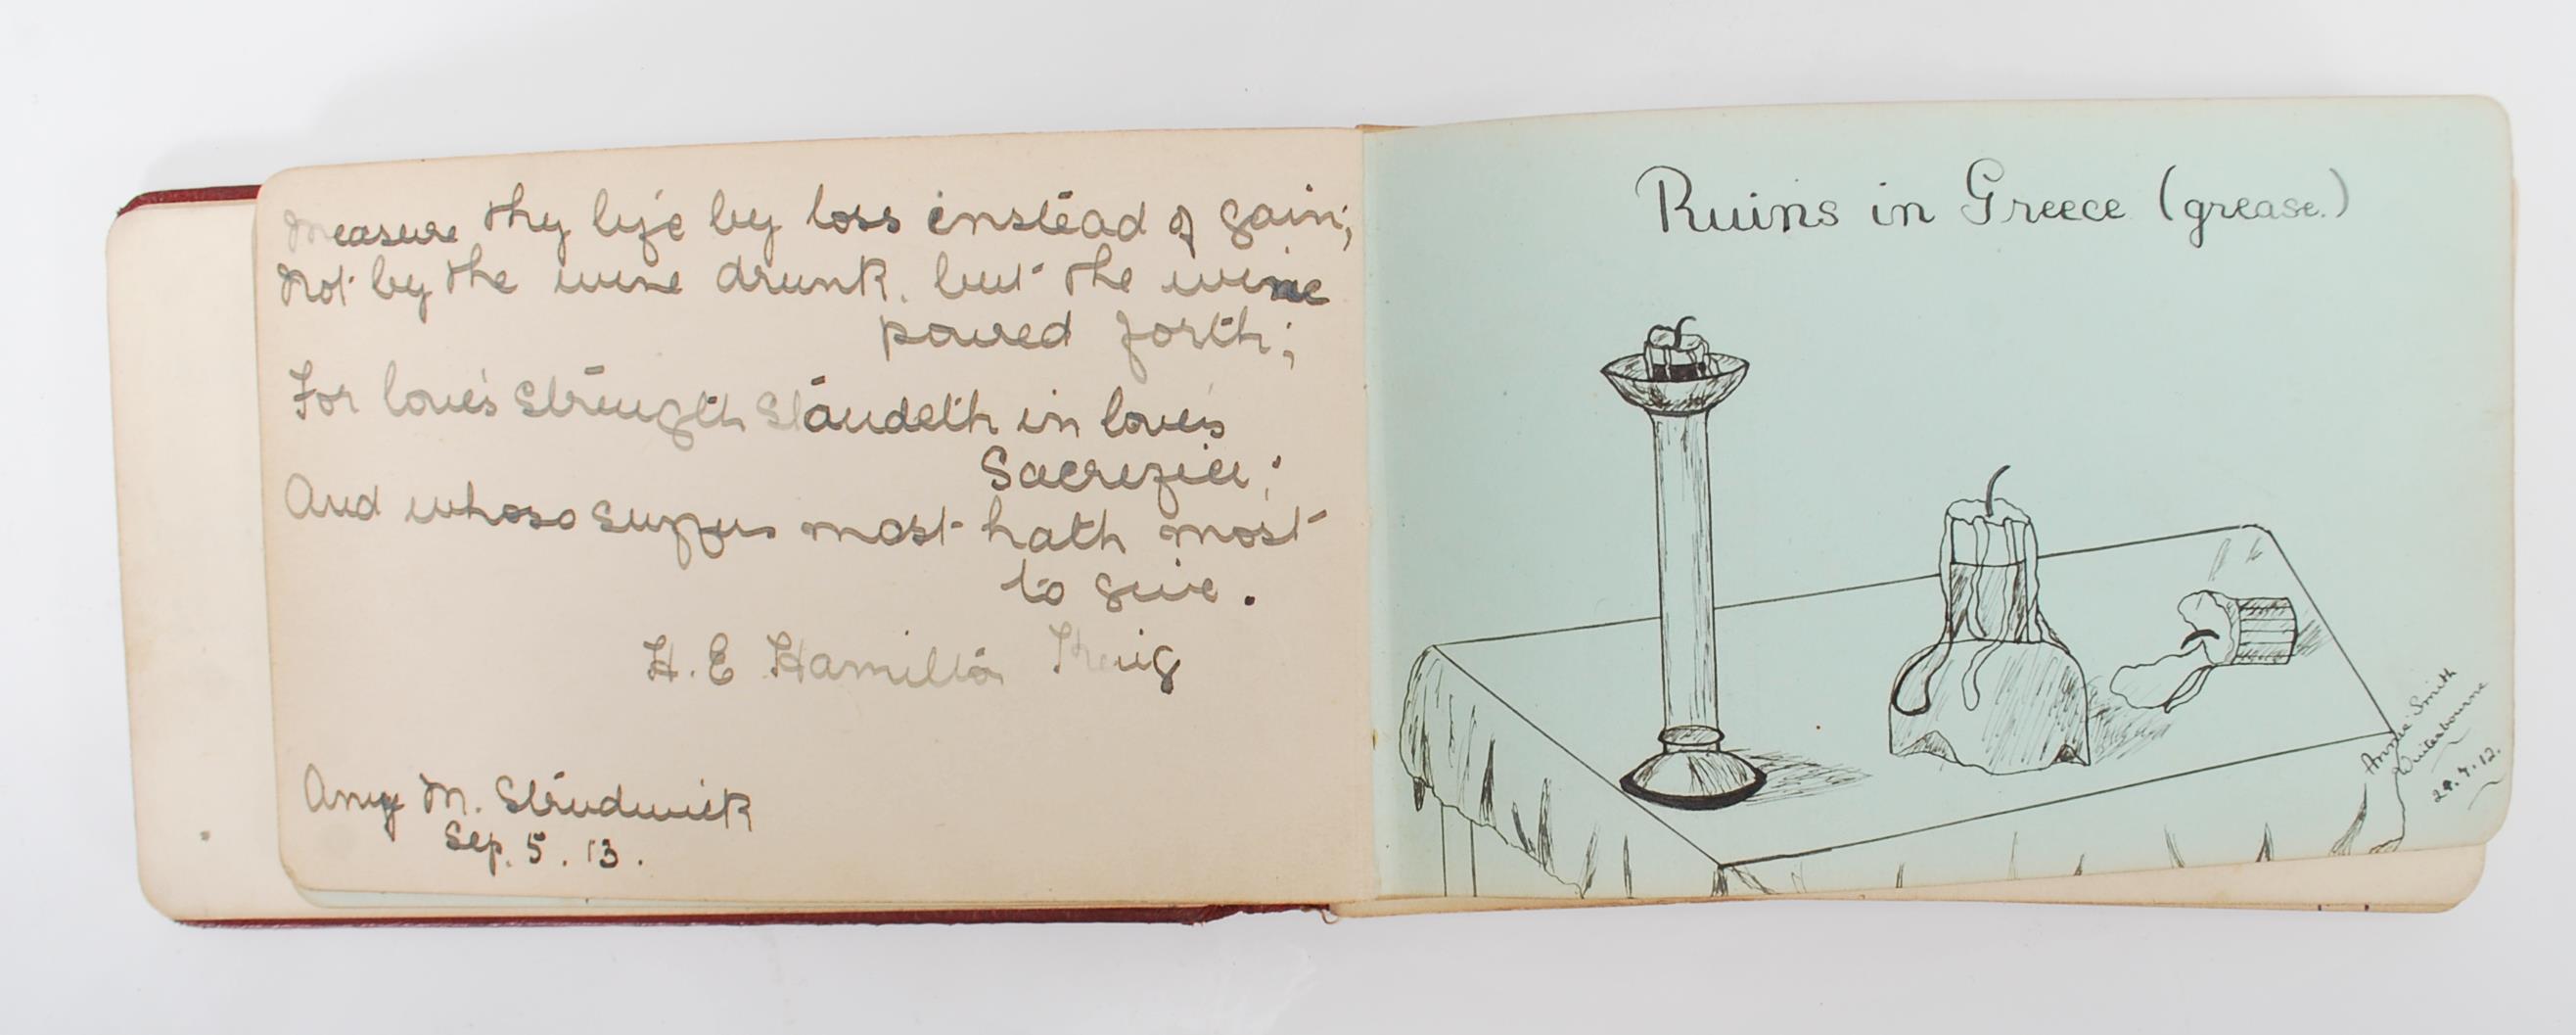 Measure thy life by loss instead of gain;
Not by the wine drunk, but the wine
poured forth;
For love's strength standeth in love's
Sacrifice;
And whoso suffers most hath most
to give.
H. E Hamilton King
Amy M. Strudwick
Sep. 5. 13.
Ruins in Greece (grease.)
Annie Smith
29.7.12.